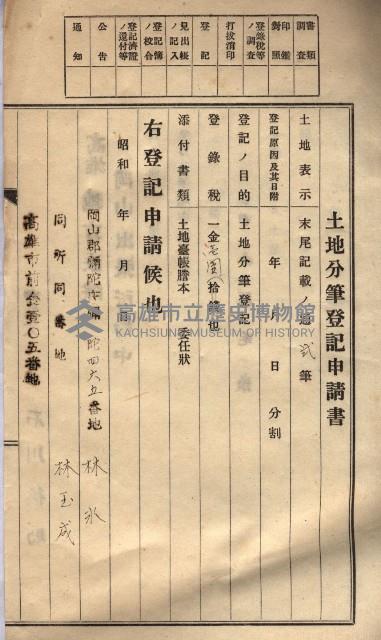 書類調査
印鑑対照
登録税等ノ調査
打抜消印
登記
見出帳ノ記入
登記簿ノ校合
登記済證ノ還付等
公告
通知
土地分筆登記申請書
土地表示 末尾記載ノ通 弐筆
登記原因及其日附 年 月 日 分割
登記ノ目的 土地分筆登記
登錄稅 一金 拾錢也
添付書類 土地臺帳謄本 委任狀
右登記申請候也
昭和 年 月 日
岡山郡彌陀庄彌陀四六五番地 林氷
同所同番地 林玉成
高雄市前金壹〇五番地
高雄市立歷史博物館
KAOHSIUNG MUSEUM OF HISTORY